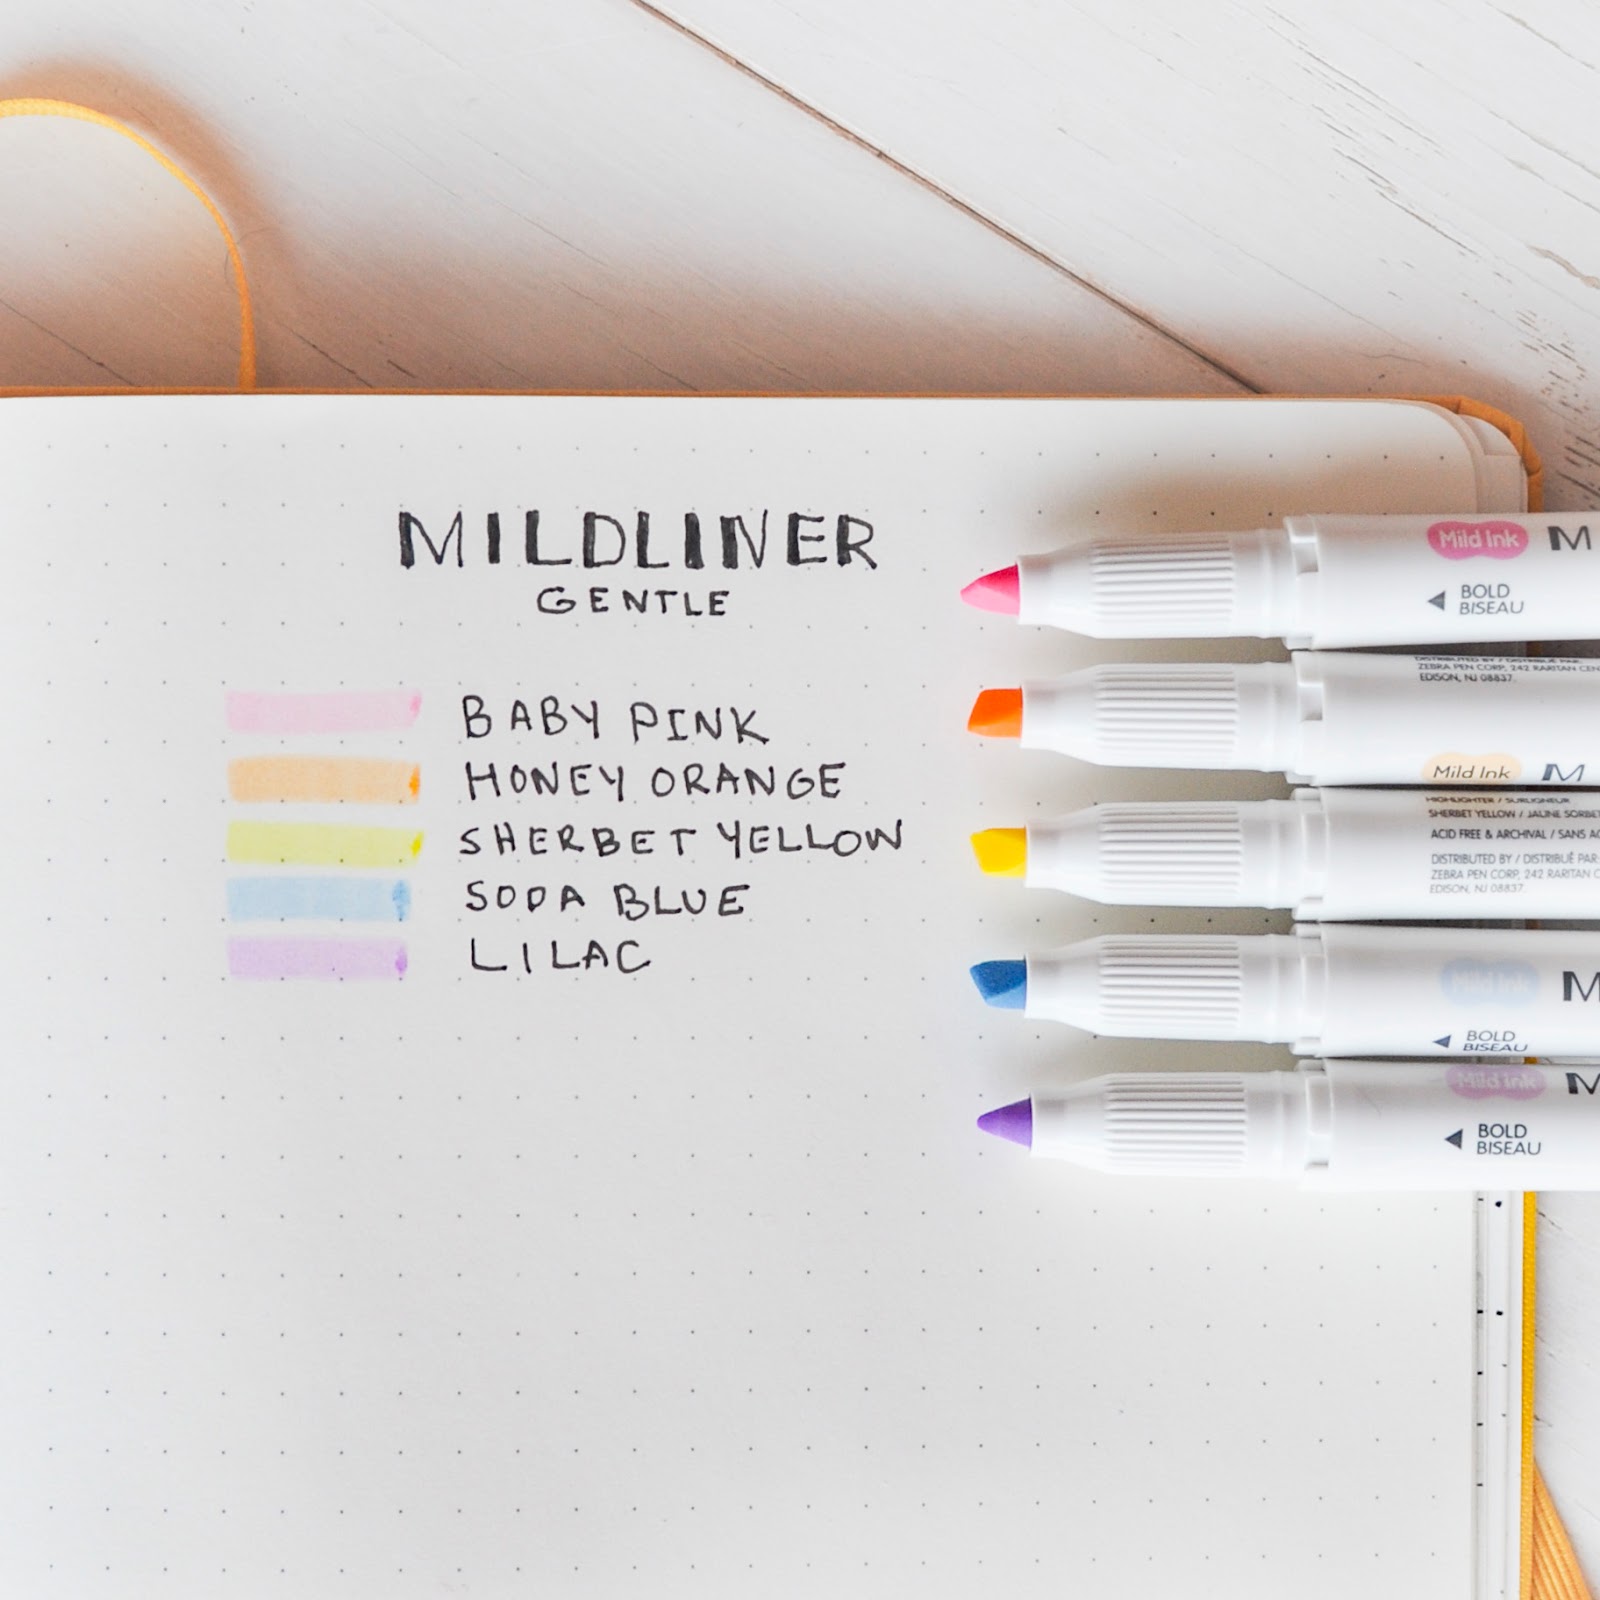 MILDLINER
GENTLE
BABY PINK
HONEY ORANGE
SHERBET YELLOW
SODA BLUE
LILAC
Mild Ink M
BOLD
BISEAU
DISTRIBUTED BY / DISTRIBUÉ PAR:
ZEBRA PEN CORP, 242 RARITAN CEN
EDISON, NJ 08837.
Mild Ink M
HIGHLIGHTER / SURLIGNEUR
SHERBET YELLOW / JAUNE SORBET
ACID FREE & ARCHIVAL / SANS AC
DISTRIBUTED BY / DISTRIBUÉ PAR:
ZEBRA PEN CORP, 242 RARITAN C
EDISON, NJ 08837.
Mild Ink M
BOLD
BISEAU
Mild Ink M
BOLD
BISEAU